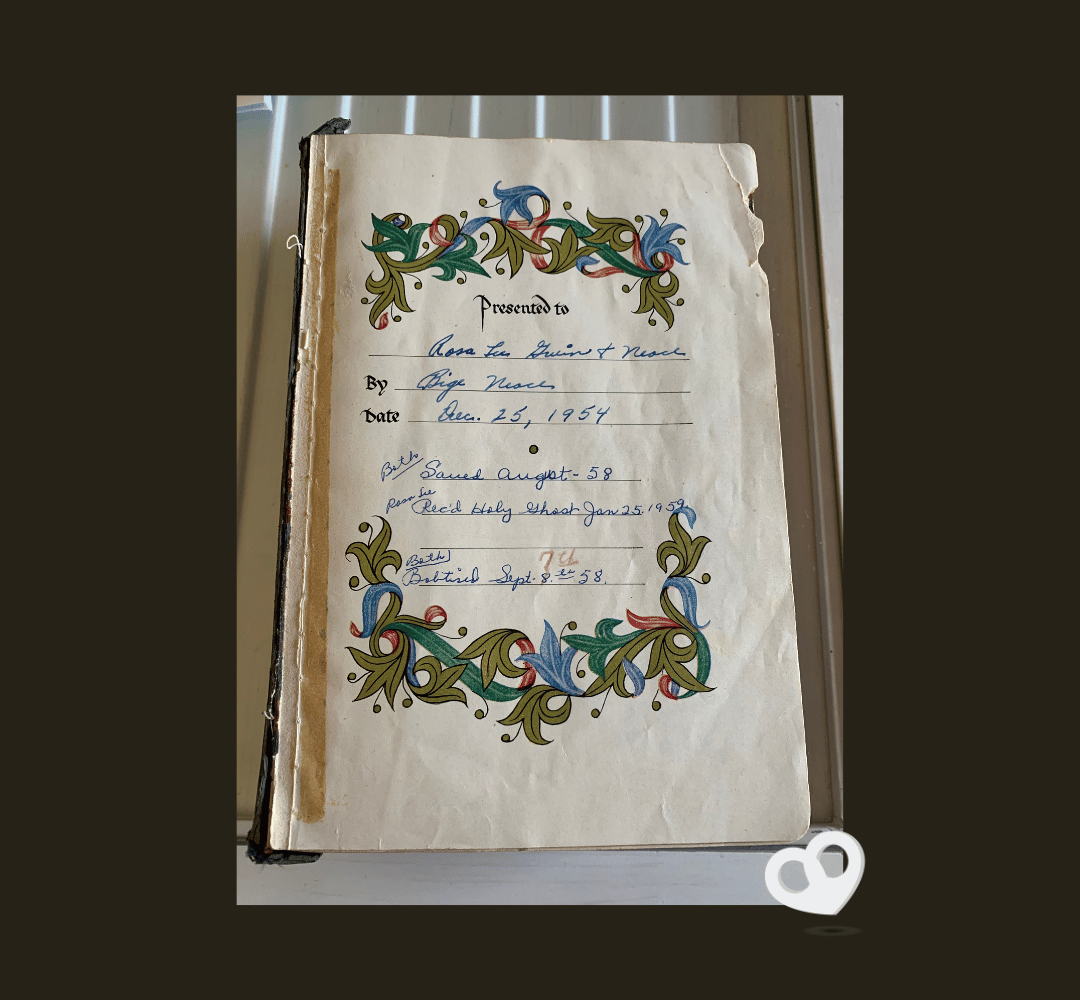 Presented to
Rosa Lee
By
Date Dec. 25, 1954
Both Saved August - 58
Rosa Lee
Rec'd Holy Ghost Jan 25. 1959
Both
7th
Babtised Sept. 8.th 58.